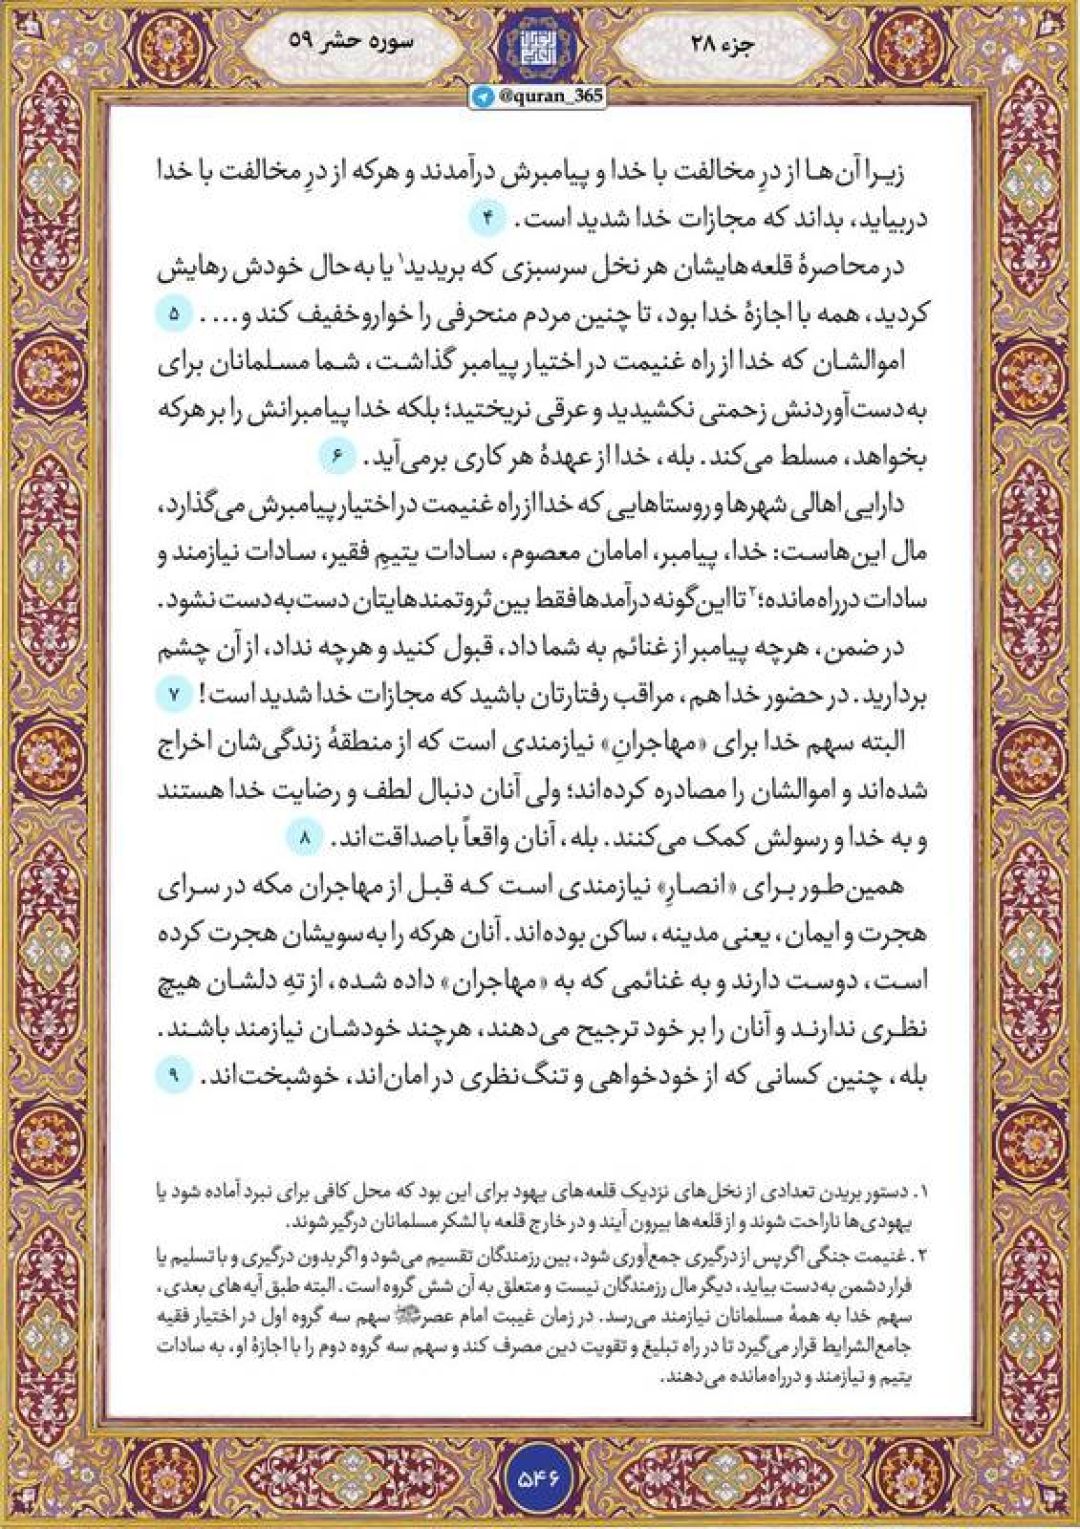 جزء ۲۸
سوره حشر ۵۹
@quran_365
زیرا آن‌ها از درِ مخالفت با خدا و پیامبرش درآمدند و هرکه از درِ مخالفت با خدا
دربیاید، بداند که مجازات خدا شدید است. ۴
در محاصرهٔ قلعه‌هایشان هر نخل سرسبزی که بریدید۱ یا به‌حال خودش رهایش
کردید، همه با اجازهٔ خدا بود، تا چنین مردم منحرفی را خوار و خفیف کند و.... ۵
اموالشان که خدا از راه غنیمت در اختیار پیامبر گذاشت، شما مسلمانان برای
به‌دست‌آوردنش زحمتی نکشیدید و عرقی نریختید؛ بلکه خدا پیامبرانش را بر هرکه
بخواهد، مسلط می‌کند. بله، خدا از عهدهٔ هر کاری برمی‌آید. ۶
دارایی اهالی شهرها و روستاهایی که خدا از راه غنیمت در اختیار پیامبرش می‌گذارد،
مال این‌هاست: خدا، پیامبر، امامان معصوم، سادات یتیمِ فقیر، سادات نیازمند و
سادات درراه‌مانده؛۲ تا این‌گونه درآمدها فقط بین ثروتمندهایتان دست‌به‌دست نشود.
در ضمن، هرچه پیامبر از غنائم به شما داد، قبول کنید و هرچه نداد، از آن چشم
بردارید. در حضور خدا هم، مراقب رفتارتان باشید که مجازات خدا شدید است! ۷
البته سهم خدا برای «مهاجرانِ» نیازمندی است که از منطقهٔ زندگی‌شان اخراج
شده‌اند و اموالشان را مصادره کرده‌اند؛ ولی آنان دنبال لطف و رضایت خدا هستند
و به خدا و رسولش کمک می‌کنند. بله، آنان واقعاً باصداقت‌اند. ۸
همین‌طور برای «انصارِ» نیازمندی است که قبل از مهاجران مکه در سرای
هجرت و ایمان، یعنی مدینه، ساکن بوده‌اند. آنان هرکه را به‌سویشان هجرت کرده
است، دوست دارند و به غنائمی که به «مهاجران» داده شده، از تهِ دلشان هیچ
نظری ندارند و آنان را بر خود ترجیح می‌دهند، هرچند خودشان نیازمند باشند.
بله، چنین کسانی که از خودخواهی و تنگ‌نظری در امان‌اند، خوشبخت‌اند. ۹
۱. دستور بریدن تعدادی از نخل‌های نزدیک قلعه‌های یهود برای این بود که محل کافی برای نبرد آماده شود یا
یهودی‌ها ناراحت شوند و از قلعه‌ها بیرون آیند و در خارج قلعه با لشکر مسلمانان درگیر شوند.
۲. غنیمت جنگی اگر پس از درگیری جمع‌آوری شود، بین رزمندگان تقسیم می‌شود و اگر بدون درگیری و با تسلیم یا
فرار دشمن به‌دست بیاید، دیگر مال رزمندگان نیست و متعلق به آن شش گروه است. البته طبق آیه‌های بعدی،
سهم خدا به همهٔ مسلمانان نیازمند می‌رسد. در زمان غیبت امام عصر سهم سه گروه اول در اختیار فقیه
جامع‌الشرایط قرار می‌گیرد تا در راه تبلیغ و تقویت دین مصرف کند و سهم سه گروه دوم را با اجازهٔ او، به سادات
یتیم و نیازمند و درراه‌مانده می‌دهند.
۵۴۶